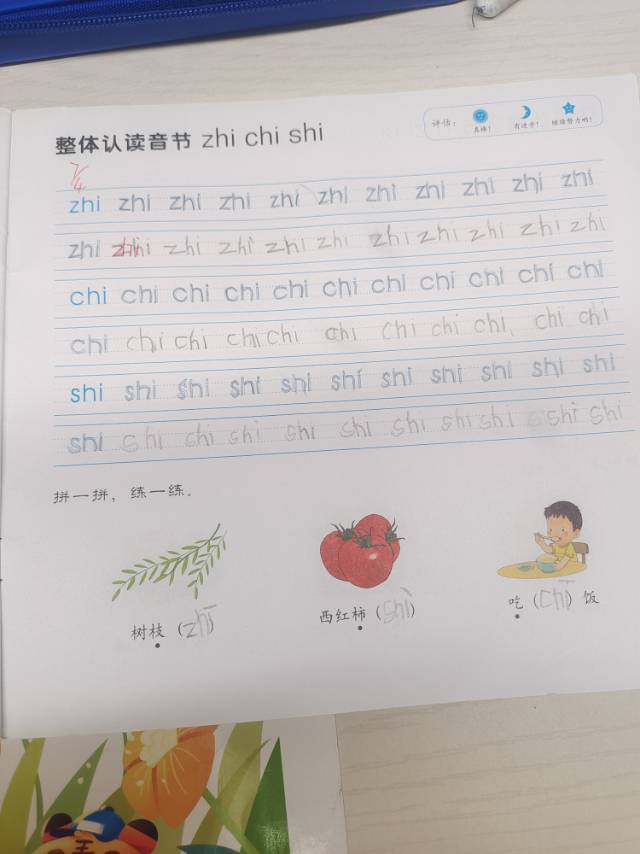 整体认读音节 zhi chi shi
评估：
真棒！ 有进步！ 继续努力哟！
7/4
zhi zhi zhi zhi zhi zhi zhi zhi zhi zhi zhi
zhi zhi zhi zhi zhi zhi zhi zhi zhi zhi zhi
chi chi chi chi chi chi chi chi chi chi chi
chi chi chi chi chi chi chi chi chi chi chi
shi shi shi shi shi shi shi shi shi shi shi
shi shi shi shi shi shi shi shi shi shi shi
拼一拼，练一练。
树枝（zhī） 西红柿（shì） 吃（chī）饭